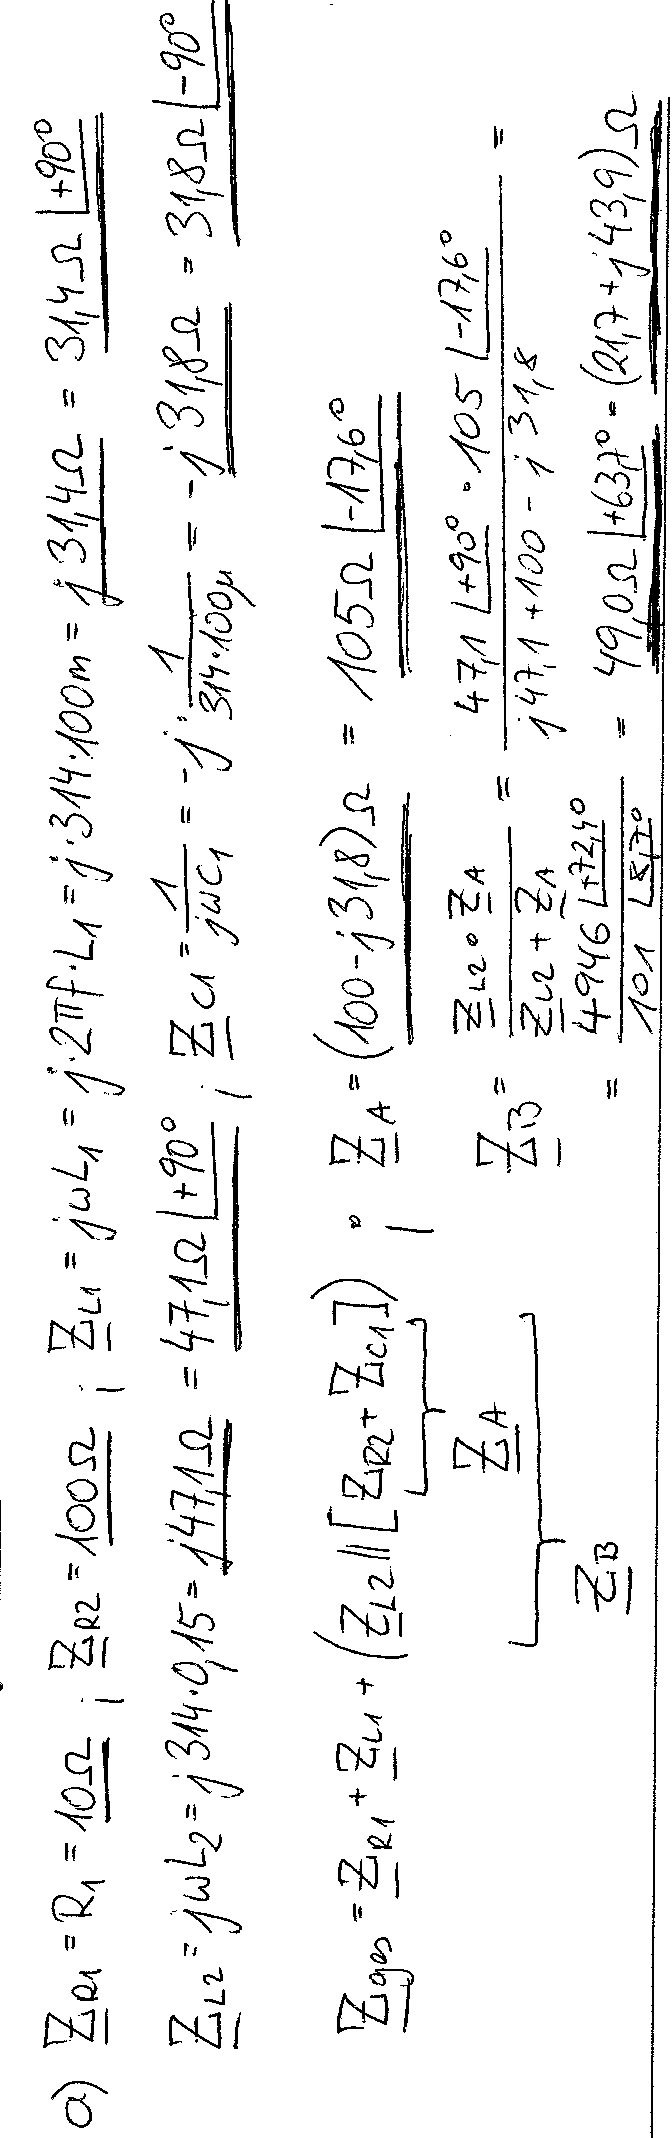 a) Z_R1 = R_1 = 10Ω ; Z_R2 = 100Ω ; Z_L1 = jωL_1 = j·2πf·L_1 = j·314·100m = j31,4Ω = 31,4Ω ∠+90°
Z_L2 = jωL_2 = j314·0,15 = j47,1Ω = 47,1Ω ∠+90° ; Z_C1 = 1/(jωC_1) = -j·1/(314·100μ) = -j31,8Ω = 31,8Ω ∠-90°
Z_ges = Z_R1 + Z_L1 + (Z_L2 || [Z_R2 + Z_C1]) ; Z_A = (100-j31,8)Ω = 105Ω ∠-17,6°
Z_A
Z_B
Z_B = (Z_L2 · Z_A)/(Z_L2 + Z_A) = (47,1 ∠+90° · 105 ∠-17,6°)/(j47,1 + 100 - j31,8) =
= (4946 ∠+72,4°)/(101 ∠8,7°) = 49,0Ω ∠+63,7° = (21,7 + j43,9)Ω